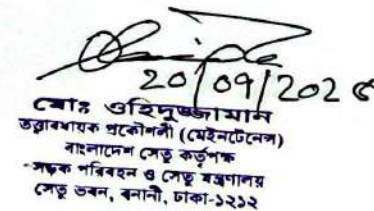 20/09/2025
মোঃ ওহিদুজ্জামান
তত্ত্বাবধায়ক প্রকৌশলী (মেইনটেনেন্স)
বাংলাদেশ সেতু কর্তৃপক্ষ
সড়ক পরিবহন ও সেতু মন্ত্রণালয়
সেতু ভবন, বনানী, ঢাকা-১২১২